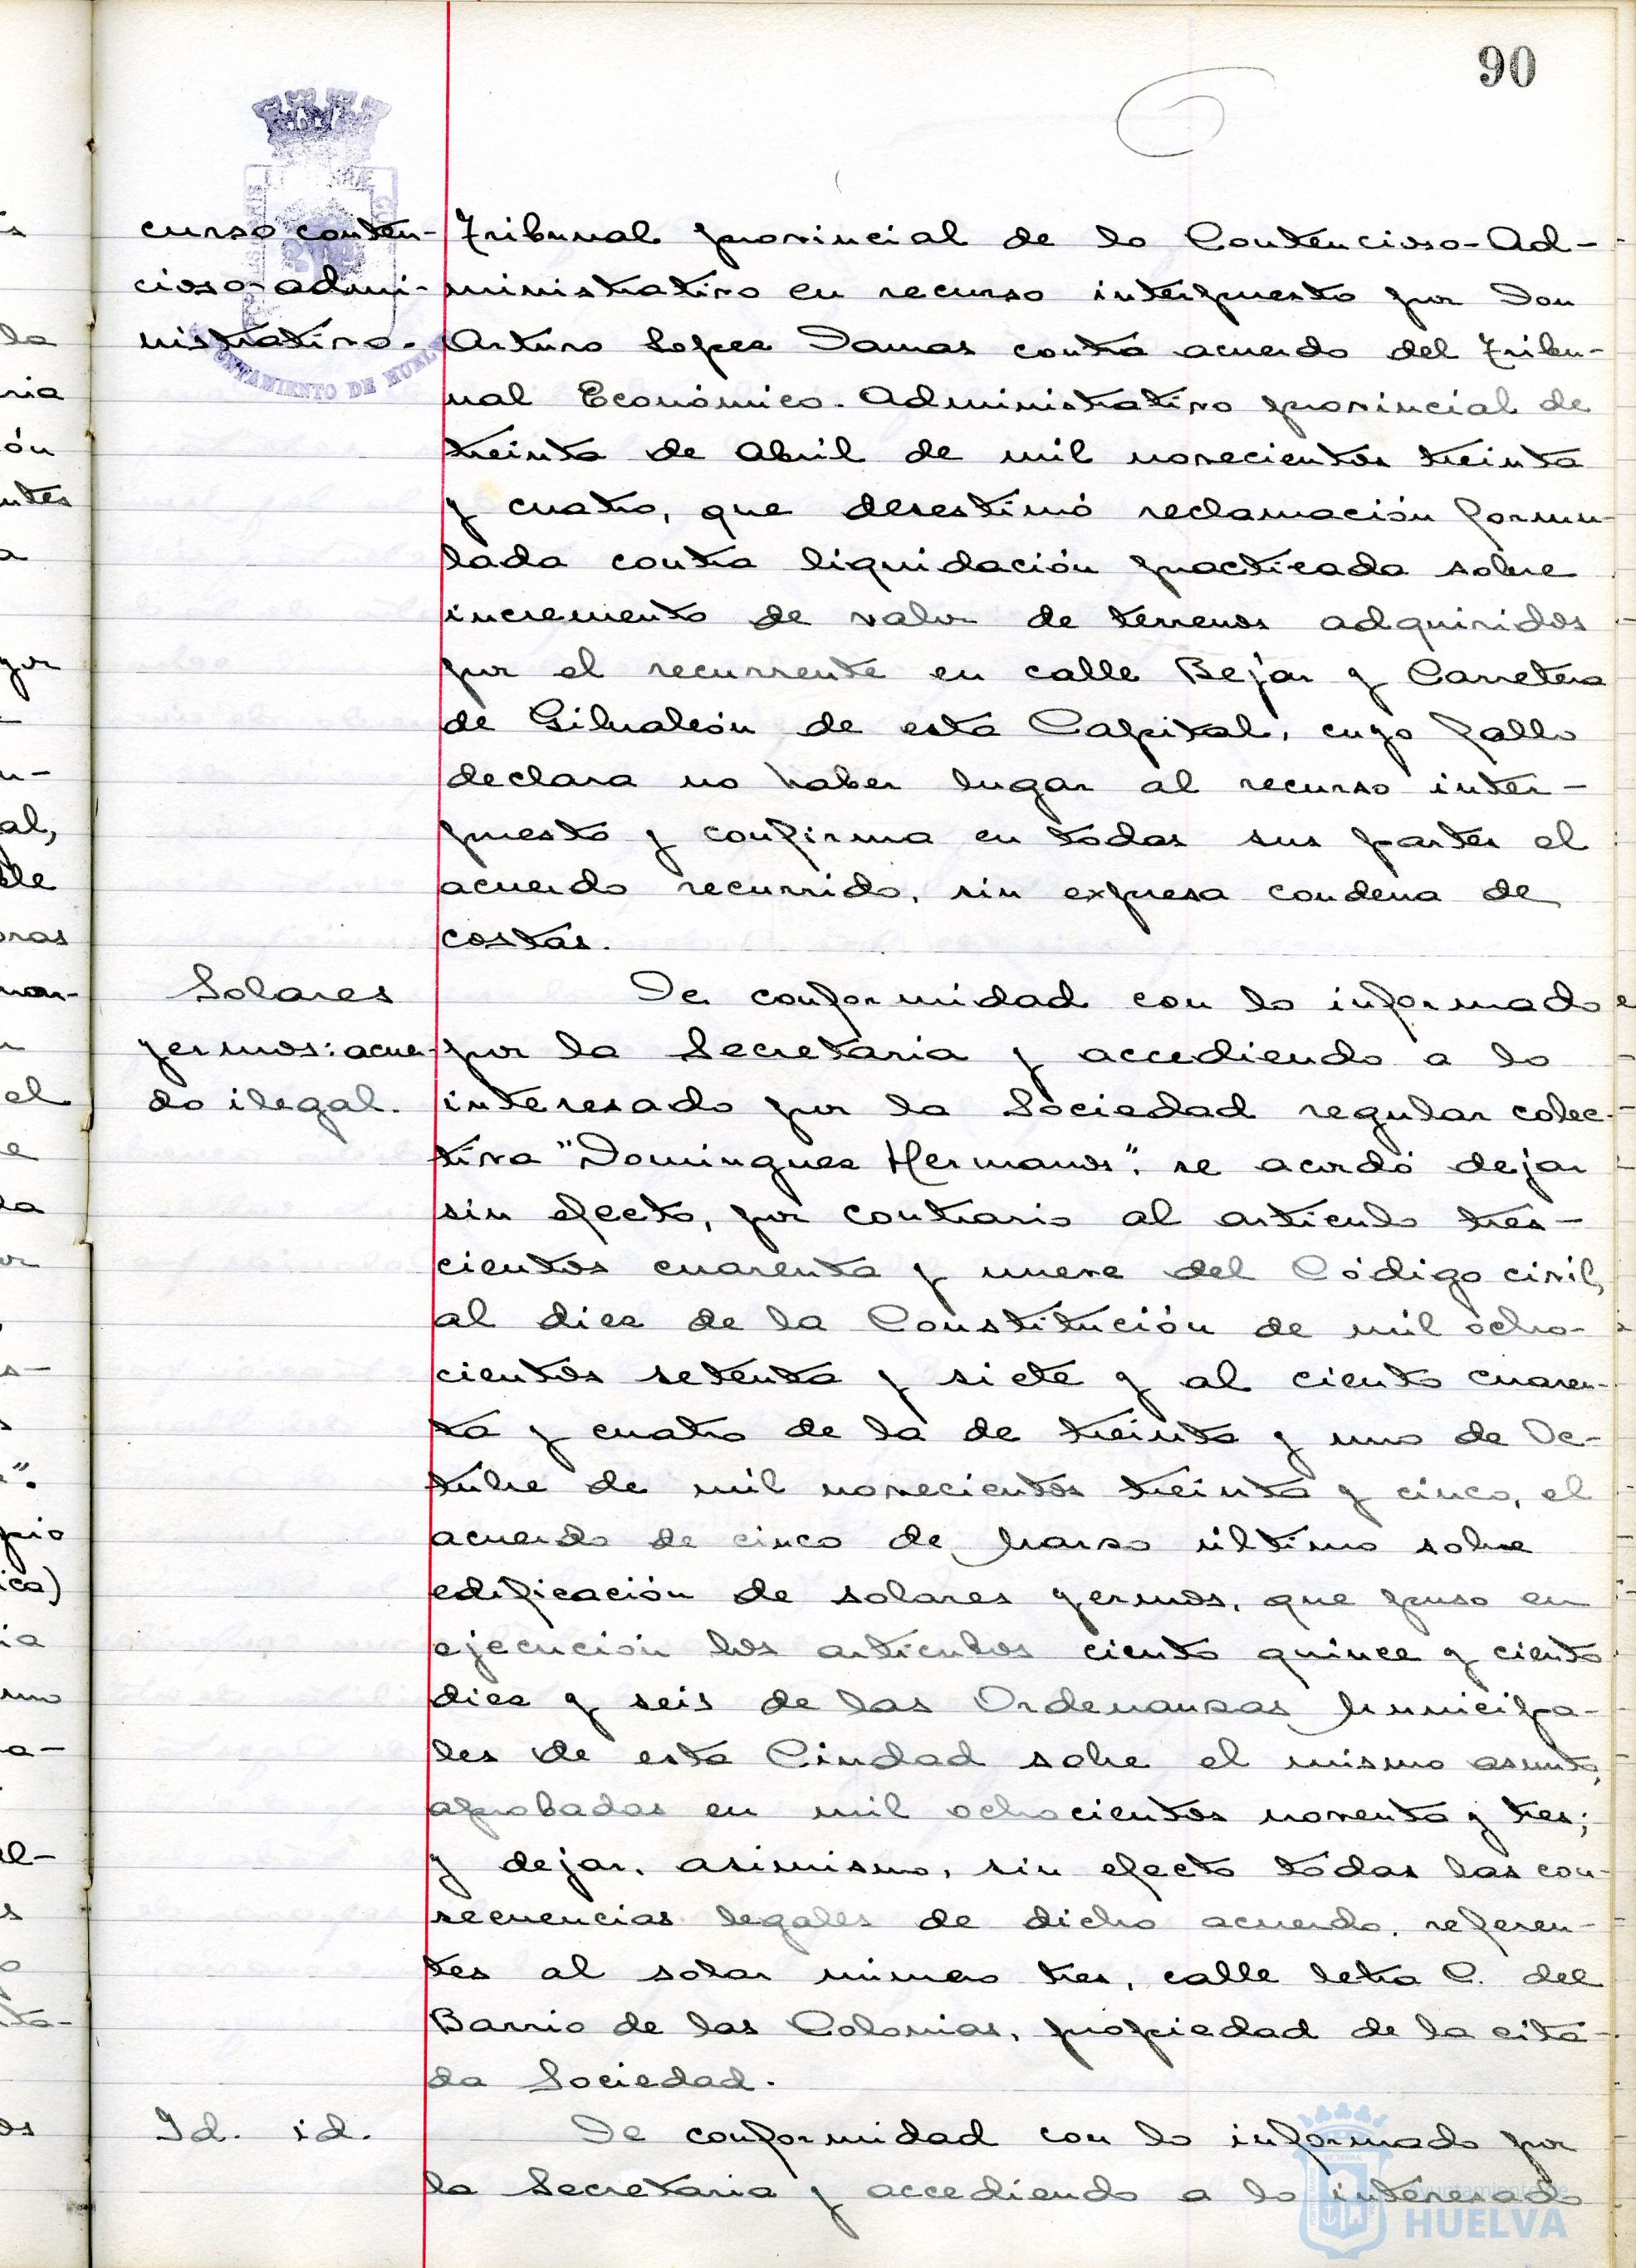 90
curso conten-
cioso-admi-
nistrativo.
AYUNTAMIENTO DE HUELVA
Tribunal provincial de lo Contencioso-Ad-
ministrativo en recurso interpuesto por Don
Arturo Lopez Damas contra acuerdo del Tribu-
nal Económico-Administrativo provincial de
treinta de Abril de mil novecientos treinta
y cuatro, que desestimó reclamación formu-
lada contra liquidación practicada sobre
incremento de valor de terrenos adquiridos
por el recurrente en calle Bejar y Carretera
de Gibraleón de esta Capital, cuyo fallo
declara no haber lugar al recurso inter-
puesto y confirma en todas sus partes el
acuerdo recurrido, sin expresa condena de
costas.
Solares
yermos: acuer-
do ilegal.
De conformidad con lo informado
por la Secretaria y accediendo a lo
interesado por la Sociedad regular colec-
tiva "Dominguez Hermanos", se acordó dejar
sin efecto, por contrario al articulo tres-
cientos cuarenta y nueve del Código civil,
al diez de la Constitución de mil ocho-
cientos setenta y siete y al ciento cuaren-
ta y cuatro de la de treinta y uno de Oc-
tubre de mil novecientos treinta y cinco, el
acuerdo de cinco de Marzo último sobre
edificación de solares yermos, que puso en
ejecución los articulos ciento quince y ciento
diez y seis de las Ordenanzas Municipa-
les de esta Ciudad sobre el mismo asunto,
aprobadas en mil ochocientos noventa y tres;
y dejar, asimismo, sin efecto todas las con-
secuencias legales de dicho acuerdo, referen-
tes al solar número tres, calle letra C. del
Barrio de las Colonias, propiedad de la cita-
da Sociedad.
Id. id.
De conformidad con lo informado por
la Secretaria y accediendo a lo interesado
Ayuntamiento de
HUELVA